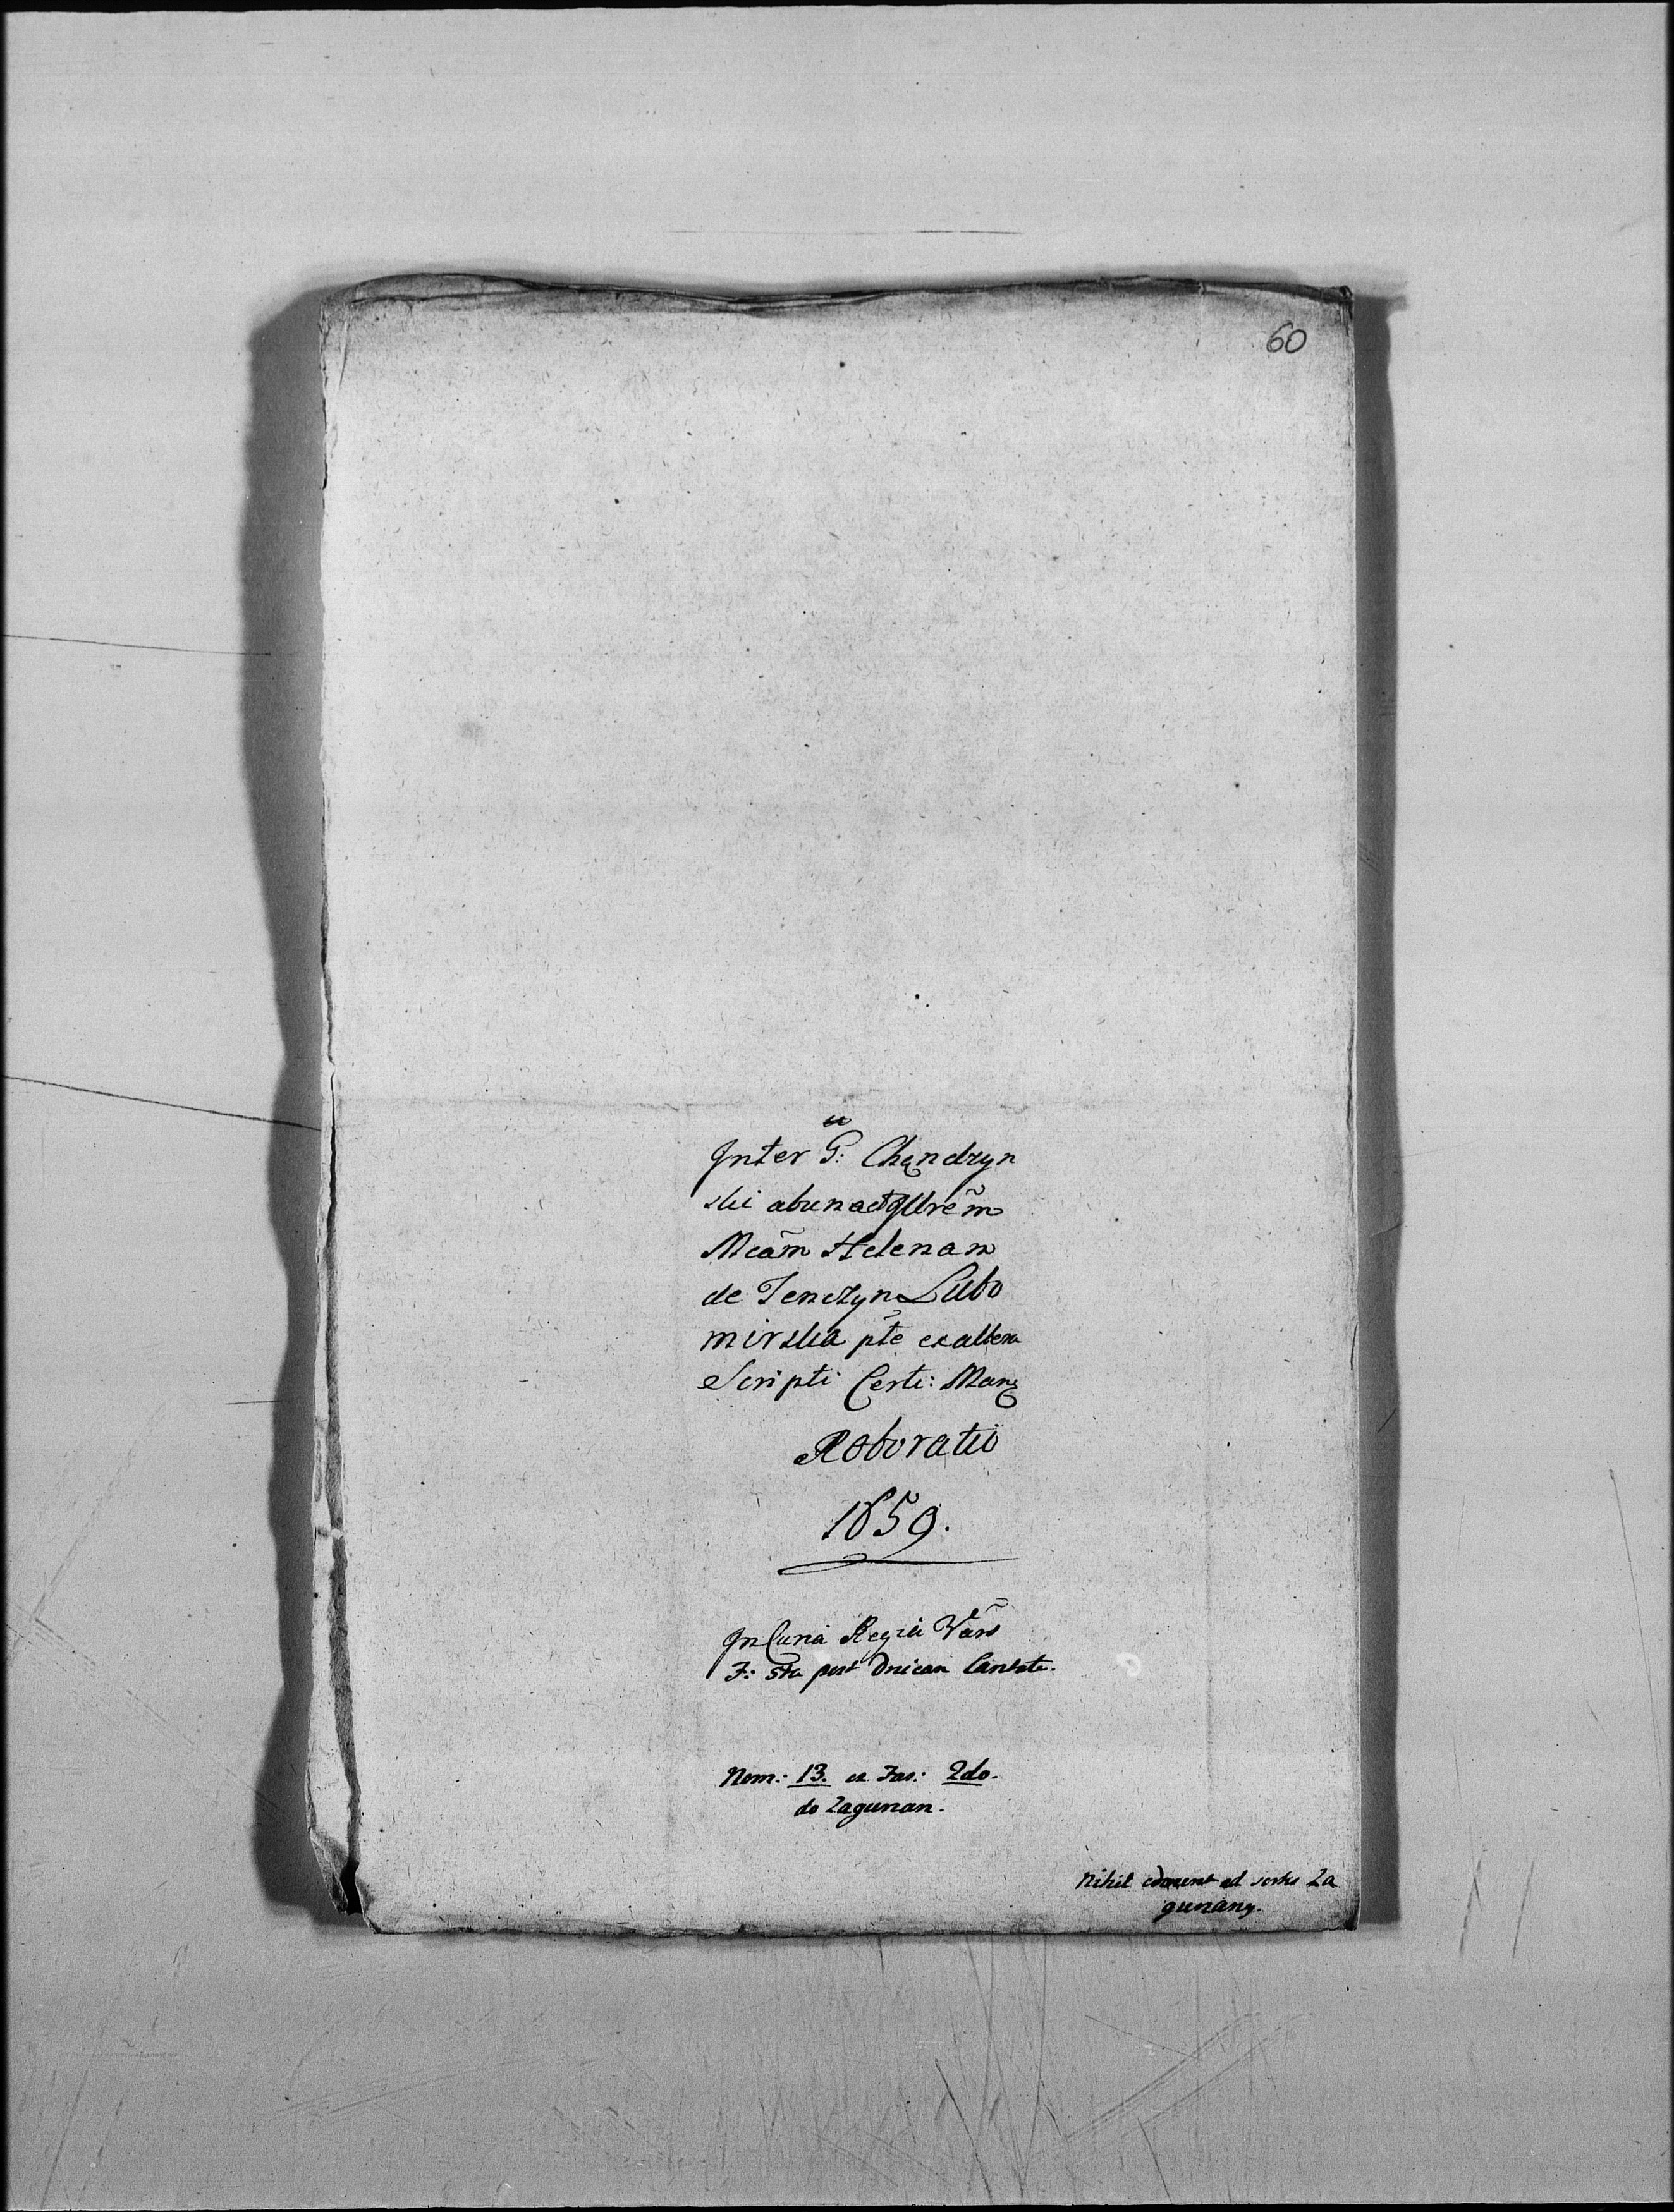 60
Inter G: Chądzyn
ski ab una et Illrem̃
Mcãm Helenam
de Tenczyn Lubo
mirska pte ex altera
Scripti Certi: Manę
Roboratio
1659.
In Curia Regia Vars
F: 5ta post Dnicam Cantate.
Nom: 13. ex Fas: 2do.
do Zagunan.
Nihil ad sortes Za
gunany.